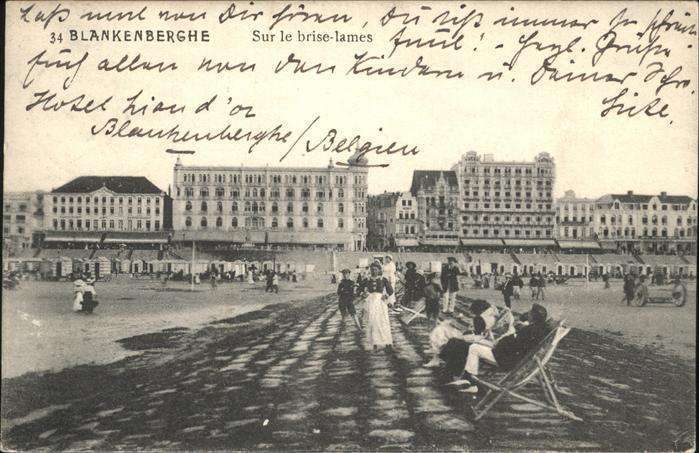 Laß mal von Dir hören, Du bist immer so schreib
34 BLANKENBERGHE Sur le brise-lames
faul! - Hrzl. Grüße
Euch allen von den Kindern u. Deiner Schw.
Hotel Lion d'or
Liese.
Blankenberghe/Belgien